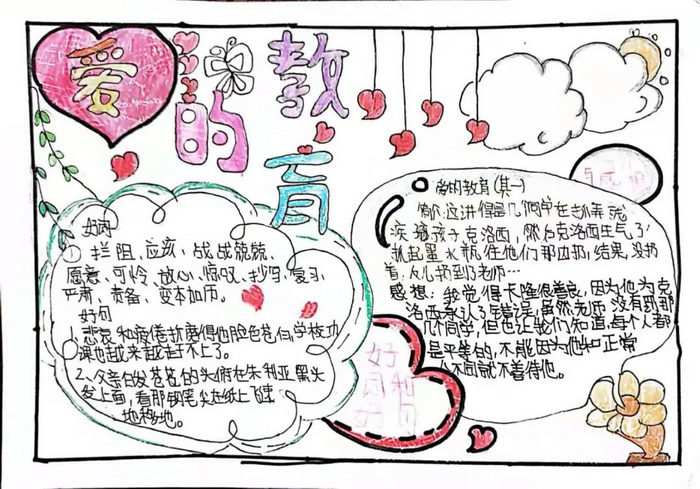 爱的教育
好词
① 拦阻、应该、战战兢兢、
愿意、可怜、放心、惊叹、抄写、复习、
严肃、责备、变本加厉。
好句
1、悲哀和疲倦折磨得他脸色苍白,学校功
课也越来越赶不上了。
2、父亲白发苍苍的头俯在朱利亚黑头
发上面,看那钢笔尖在纸上飞速
地移地。
好词和好句
爱的教育(其一)
简介:这讲得是几个同学在捉弄残
疾孩子克洛西,然后克洛西生气了
抓起墨水瓶往他们那边扔,结果,没扔
着,反儿扔到了老师…
感想:我觉得卡隆很善良,因为他为克
洛西承认了错误,虽然老师没有到那
几个同学,但也让他们知道,每个人都
是平等的,不能因为他和正常
人不同就不善待他。